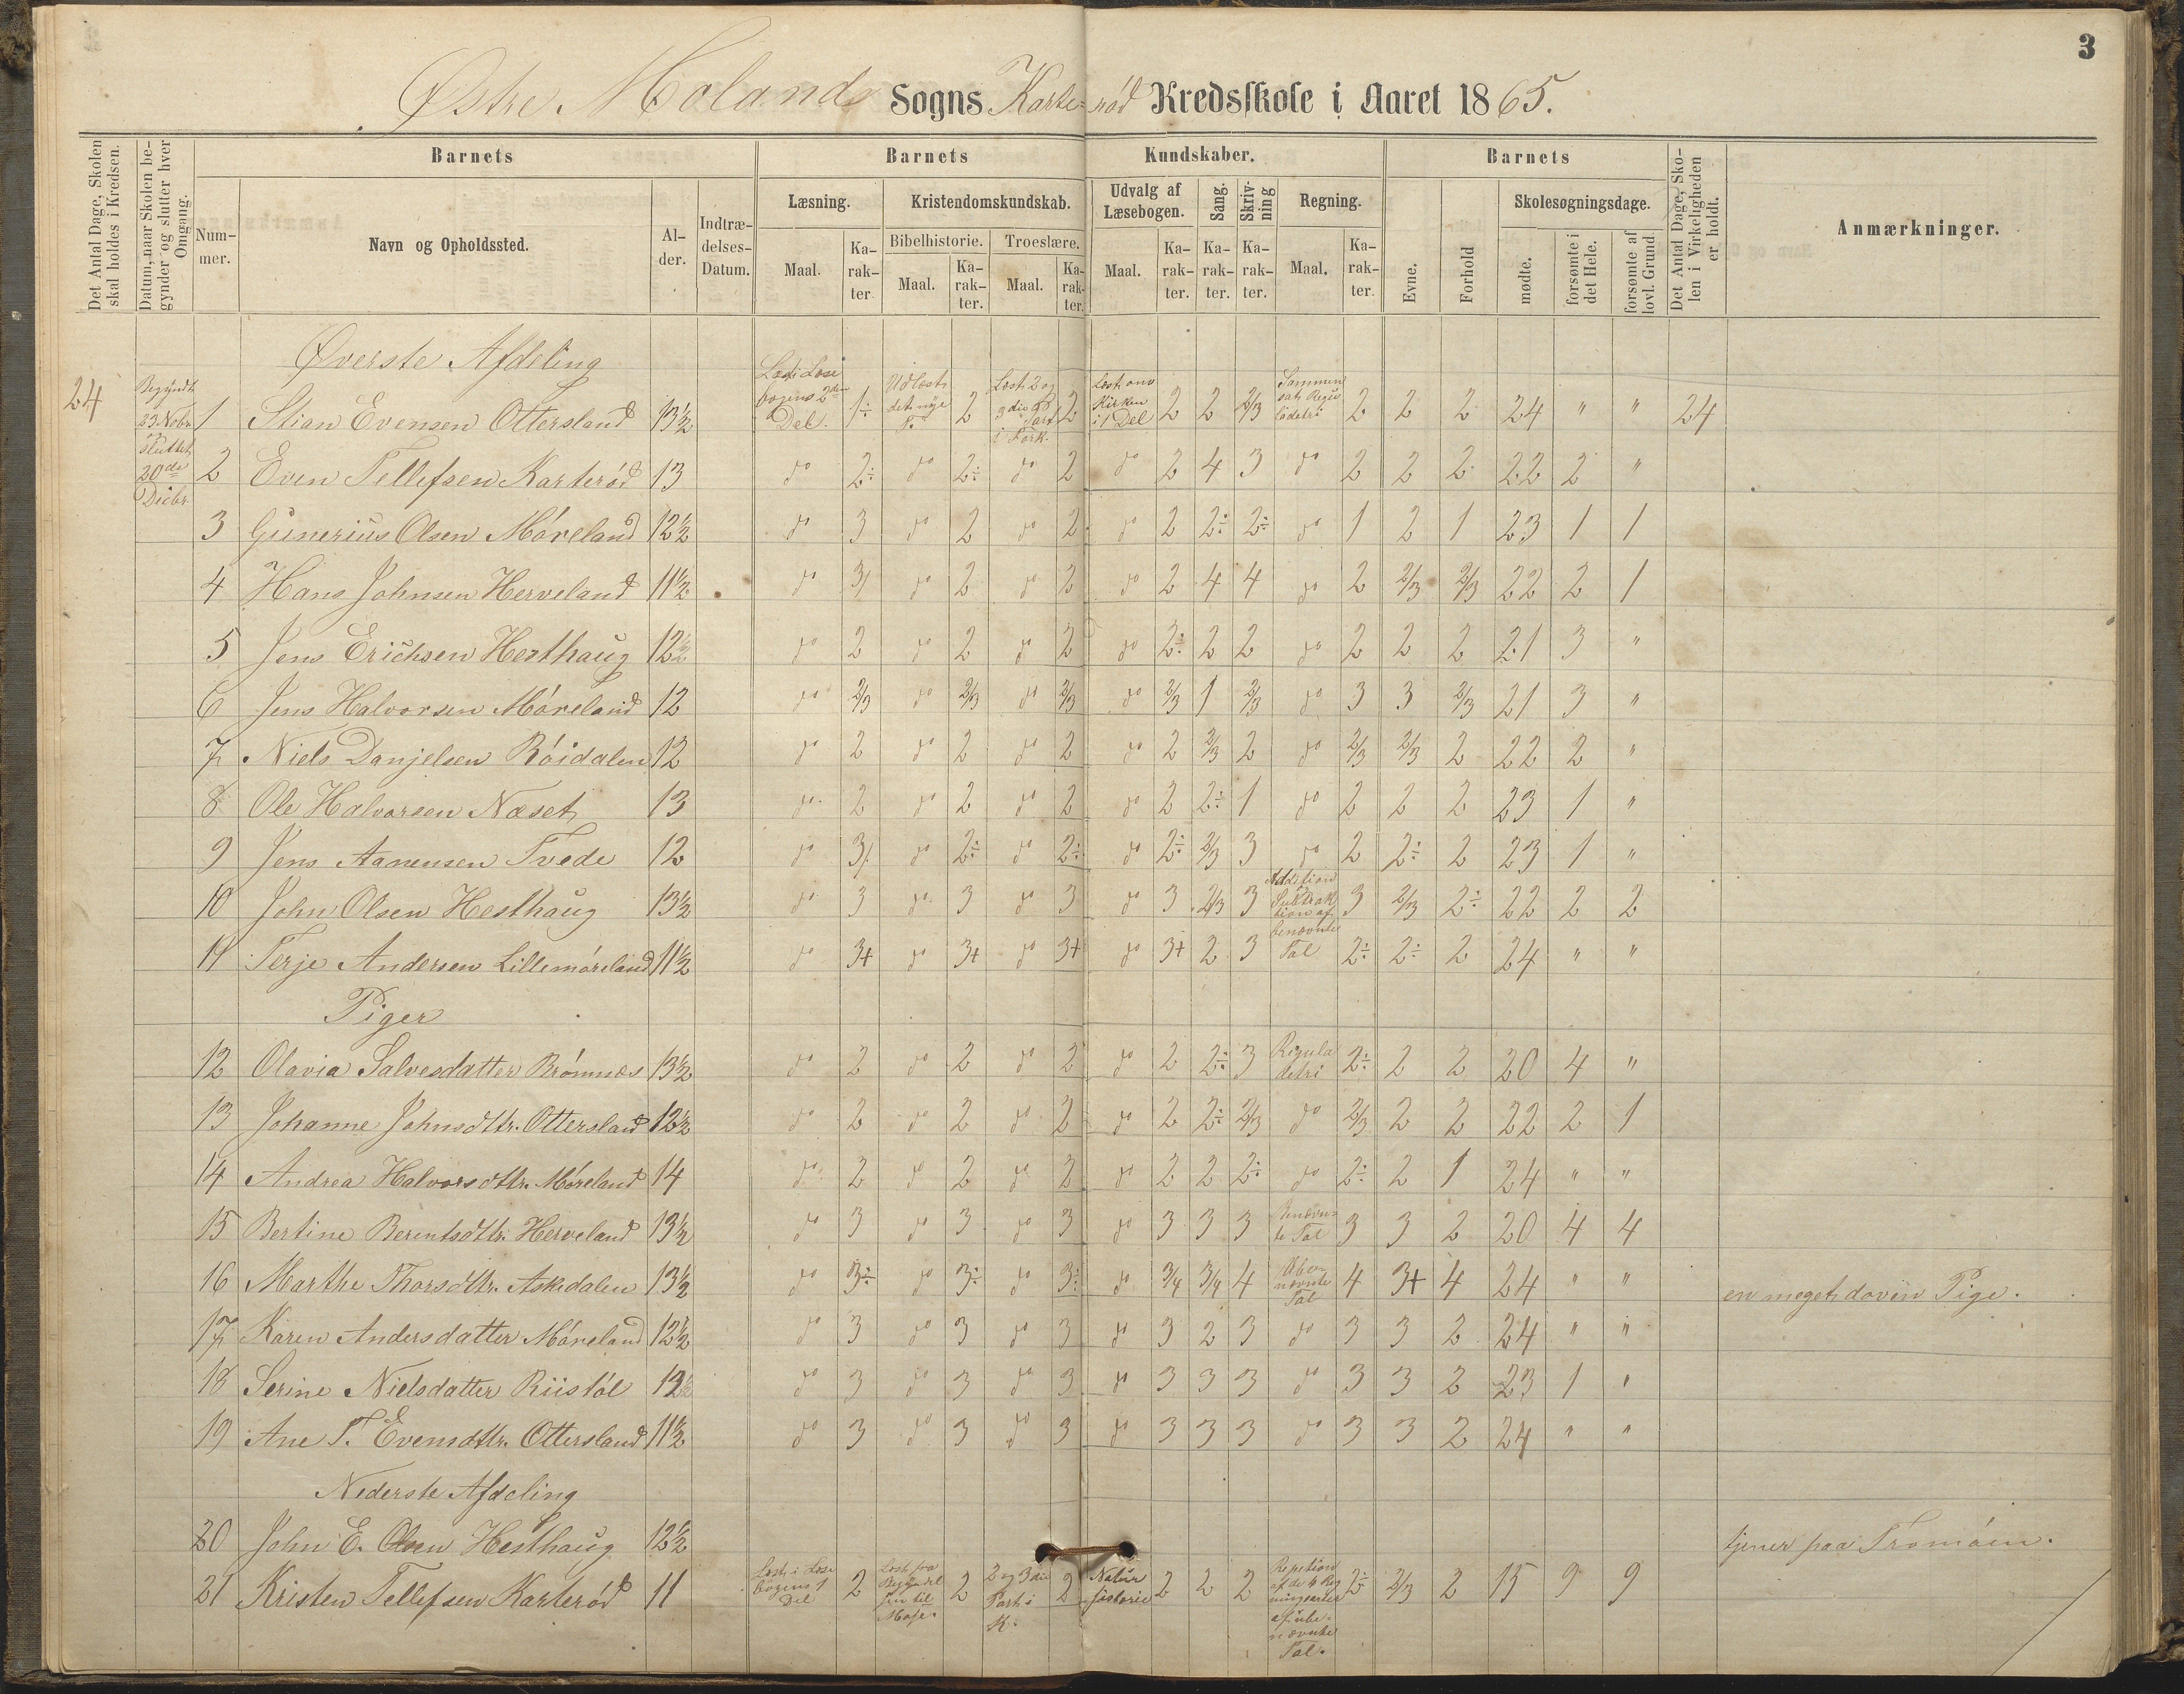 3
Østre Molands Sogns Karte=rød Kredsskole i Aaret 1865.
Det Antal Dage, Skolen skal holdes i Kredsen.
Datum, naar Skolen begynder og slutter hver Omgang.
Barnets Barnets Kundskaber. Barnets
Nummer. Navn og Opholdssted. Alder. Indtrædelses-Datum.
Læsning. Kristendomskundskab. Udvalg af Læsebogen. Sang. Skrivning Regning.
Bibelhistorie. Troeslære.
Maal. Karakter. Maal. Karakter. Maal. Karakter. Maal. Karakter. Karakter. Karakter. Maal. Karakter.
Evne. Forhold Skolesøgningsdage.
mødte. forsømte i det Hele. forsømte af lovl. Grund.
Det Antal Dage, Skolen i Virkeligheden er holdt.
Anmærkninger.
Øverste Afdeling
24 Begyndt 23 Nobr. Sluttet 20de Decbr.
1 Stian Evensen Ottersland 13½ Læst i Læsebogens 2den Del. 1÷ Udlæst det nye T. 2 Læst 2 og 3die Part i Fork. 2 Læst om Kirken i 1 Del 2 2 2/3 Sammensat Reguladetri 2 2 2 24 " " 24
2 Even Tellefsen Karterød 13 do 2÷ do 2÷ do 2 do 2 4 3 do 2 2 2 22 2 "
3 Gunerius Olsen Møreland 12½ do 3 do 2 do 2 do 2 2÷ 2÷ do 1 2 1 23 1 1
4 Hans Johnsen Herveland 11½ do 3/ do 2 do 2 do 2 4 4 do 2 2/3 2/3 22 2 1
5 Jens Erichsen Hesthaug 12½ do 2 do 2 do 2 do 2÷ 2 2 do 2 2 2 21 3 "
6 Jens Halvorsen Møreland 12 do 2/3 do 2/3 do 2/3 do 2/3 1 2/3 do 3 3 2/3 21 3 "
7 Niels Danjelsen Røidalen 12 do 2 do 2 do 2 do 2 2/3 2 do 2/3 2/3 2 22 2 "
8 Ole Halvorsen Næset 13 do 2 do 2 do 2 do 2 2÷ 1 do 2 2 2 23 1 "
9 Jens Aanensen Tvede 12 do 3/. do 2÷ do 2÷ do 2÷ 2/3 3 do 2 2÷ 2 23 1 "
10 John Olsen Hesthaug 13½ do 3 do 3 do 3 do 3 2/3 3 Addition Subtraktion af benævnte Tal 3 2/3 2÷ 22 2 2
11 Terje Andersen Lillemøreland 11½ do 3+ do 3+ do 3+ do 3+ 2 3 2÷ 2÷ 2 24 " "
Piger
12 Olavia Salvesdatter Brømnes 13½ do 2 do 2 do 2 do 2 2÷ 3 Reguladetri 2÷ 2 2 20 4 "
13 Johanne Johnsdttr. Ottersland 12½ do 2 do 2 do 2 do 2 2÷ 2/3 do 2/3 2 2 22 2 1
14 Andrea Halvorsdttr. Møreland 14 do 2 do 2 do 2 do 2 2 2÷ do 2÷ 2 1 24 " "
15 Bertine Berentsdttr. Herveland 13½ do 3 do 3 do 3 do 3 3 3 Benævnte Tal 3 3 2 20 4 4
16 Marthe Thorsdttr. Askedalen 13½ do 3÷ do 3÷ do 3÷ do 3/4 3/4 4 Ubenævnte Tal 4 3+ 4 24 " " en meget doven Pige.
17 Karen Andersdatter Møreland 12½ do 3 do 3 do 3 do 3 2 3 do 3 3 2 24 " "
18 Serine Nielsdatter Riistøl 12½ do 3 do 3 do 3 do 3 3 3 do 3 3 2 23 1 "
19 Ane T. Evensdttr. Ottersland 11½ do 3 do 3 do 3 do 3 3 3 do 3 3 2 24 " "
Nederste Afdeling
20 John E. Olsen Hesthaug 12½ tjener paa Tromøen.
21 Kristen Tellefsen Karterød 11 Læst i Læsebogens 1 Del 2 Læst fra Begyndelsen til Mose. 2 2 og 3die Part i K. 2 Naturhistorie 2 2 2 Repetion af de 4 Regningsarter af ubenævnte Tal. 2÷ 2/3 2 15 9 9